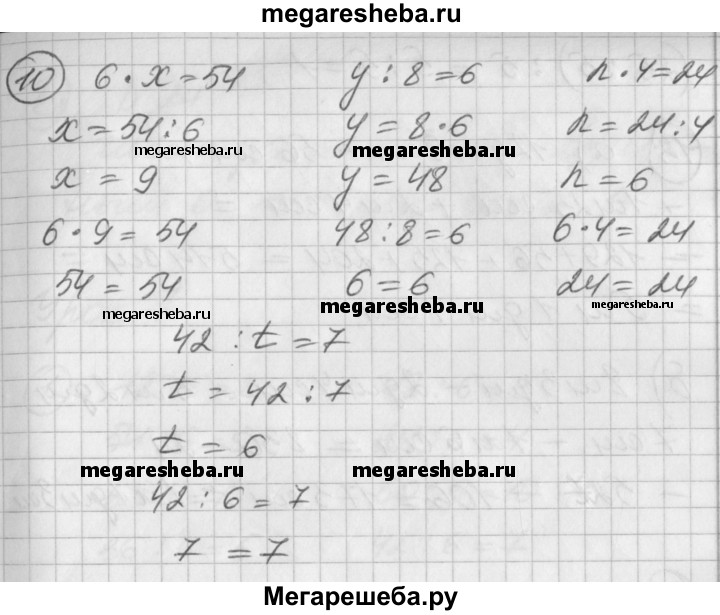 megaresheba.ru
10 6 · x = 54 y : 8 = 6 n · 4 = 24
x = 54 : 6 y = 8 · 6 n = 24 : 4
megaresheba.ru megaresheba.ru megaresheba.ru
x = 9 y = 48 n = 6
6 · 9 = 54 48 : 8 = 6 6 · 4 = 24
54 = 54 6 = 6 24 = 24
megaresheba.ru megaresheba.ru megaresheba.ru
42 : t = 7
t = 42 : 7
t = 6
megaresheba.ru megaresheba.ru
42 : 6 = 7
7 = 7
Мегарешеба.ру